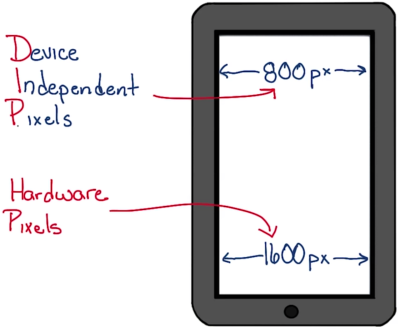 Device
Independent
Pixels
800px
Hardware
Pixels
1600px